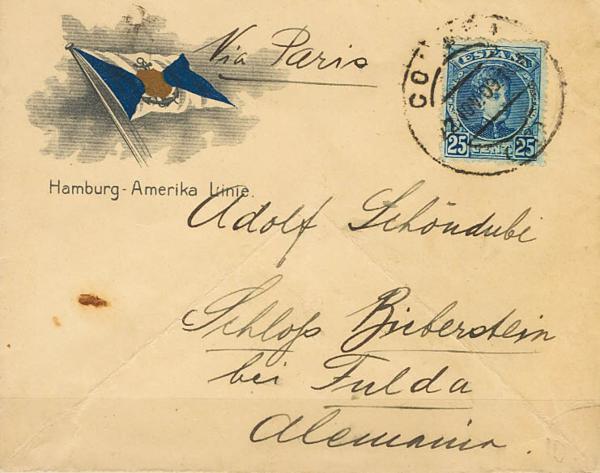 Via Paris
ESPAÑA
25 25
Hamburg-Amerika Linie.
Adolf Schöndube
Schloſs Bieberstein
bei Fulda
Alemania.